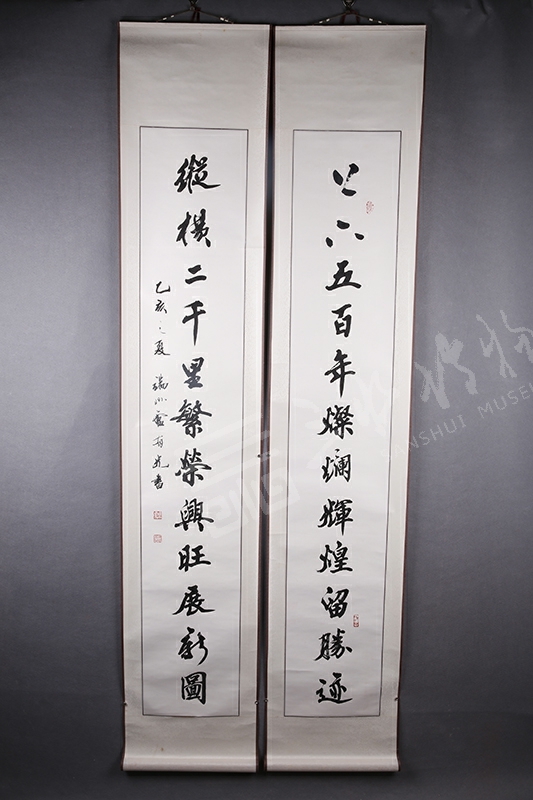 上下五百年燦爛輝煌留勝迹
縱橫二千里繁榮興旺展新圖
乙亥之夏 書
NSHUI MUSE